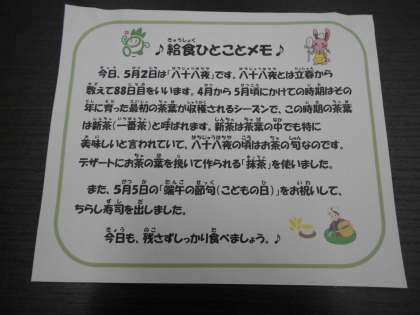 ♪給食ひとことメモ♪
今日、5月2日は「八十八夜」です。八十八夜とは立春から
数えて88日目をいいます。4月から5月頃にかけての時期はその
年に育った最初の茶葉が収穫されるシーズンで、この時期の茶葉
は新茶(一番茶)と呼ばれます。新茶は茶葉の中でも特に
美味しいと言われていて、八十八夜の頃はお茶の旬なのです。
デザートにお茶の葉を挽いて作られる「抹茶」を使いました。
また、5月5日の「端午の節句(こどもの日)」をお祝いして、
ちらし寿司を出しました。
今日も、残さずしっかり食べましょう。♪